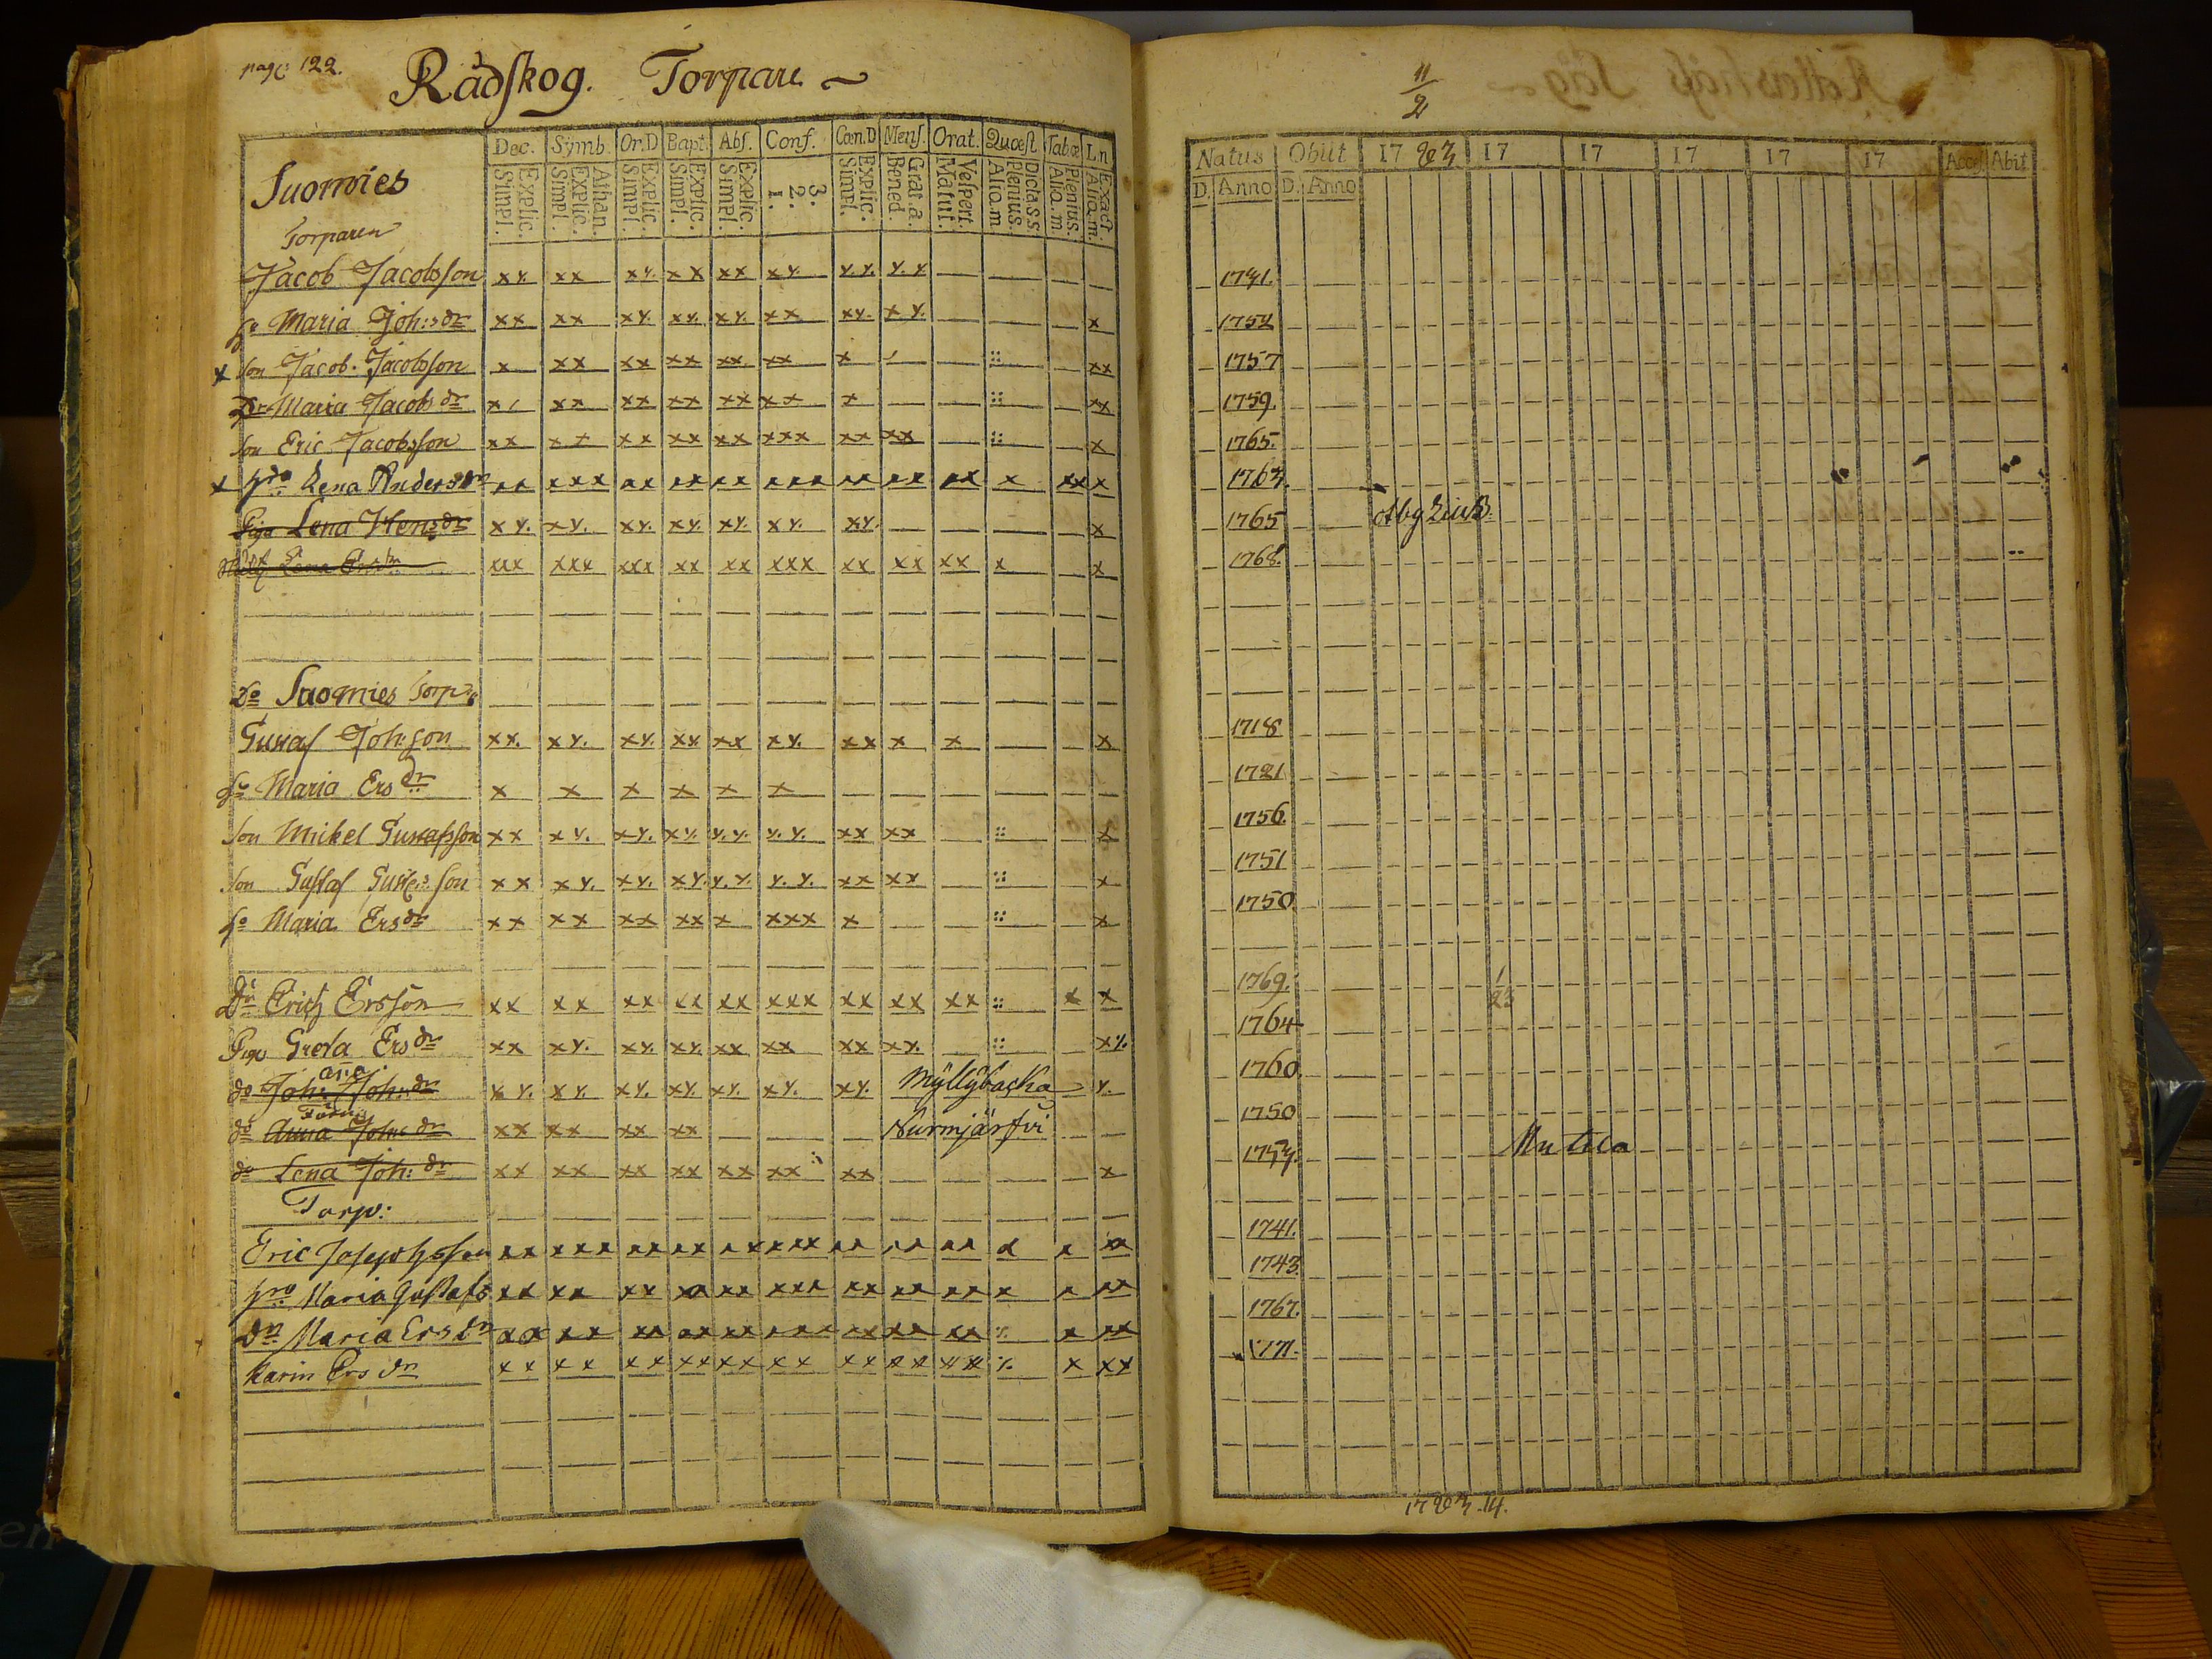 pag: 122.
Rådskog. Torpare
Suomies
Torparen
Dec. Symb. Or.D Bapt. Abs. Conf. Cœn.D Mens. Orat. Quæst Tabœ Ln
Explic. Simpl. Athan. Explic. Simpl. Explic. Simpl. Explic. Simpl. Explic. Simpl. 3. 2. 1. Explic. Simpl. Grat. a. Bened. Vespert. Matut. Dicta s.s Plenius. Aliq.m Plenius. Aliq.m. Exact Aliq.m.
Jacob Jacobsson xy. xx xy. xx xx xy. y.y. y.y
Maria Joh:s dr xx xx xy. xy. xy. xx xy. xy. x
x Son Jacob Jacobsson x xx xx xx xx. xx x :: xx
Dr Maria Jacobs dr x xx xx xx xx xx x :: xx
Son Eric Jacobsson xx xx xx xx xx xxx xx xx :: x
x hro Lena Anders dr xx xxx xx xx xx xxx xx xx xx x xx x
Piga Lena Hen:s dr xy. xy. xy. xy. xy. xy. xy. x
Lena Ers dr xxx xxx xxx xx xx xxx xx xx xx x x
Do Suomies Torp:
Gustaf Joh:son xx. xy. xy. xx xx xy. xx x x x
Maria Ers dr x x x x x x
Son Mikel Gustafsson xx xy. xy. xy. y.y. y.y. xx xx :: x
Son Gustaf Gust:son xx xy. xy. xy. y.y. y.y. xx xx :: x
Maria Ers dr xx xx xx xx x xxx x :: x
Erich Ersson xx xx xx xx xx xxx xx xx xx :: x x
Piga Greta Ers dr xx xy. xy. xy. xx xx xx xy. :: x%
do Joh: Joh: dr xy. xy. xy. xy. xy. xy. xy. Myllÿbacka y.
do Anna Joh: dr xx xx xx xx Nurmjärfvi
do Lena Joh: dr xx xx xx xx xx xx xx x
Torp:
Eric Josephsson xx xxx xx xx xx xxx xx xx xx x x xx
hro Maria Gustafs xx xx xx xx xx xxx xx xx xx x x xx
dn Maria Ers dr xx xx xx xx xx xxx xx xx xx % x xx
Karin Ers dr xx xx xx xx xx xx xx xx xx % x xx
11/2
Natus Obiit 17 83 17 17 17 17 17 Acces Abit
D. Anno D. Anno
1741.
1752
1757
1759.
1765.
1763.
1765
1768.
1718
1721
1756.
1751
1750
1769.
1764
1760.
1750
1753. Mutila
1741.
1743.
1767.
1771.
1783.14.